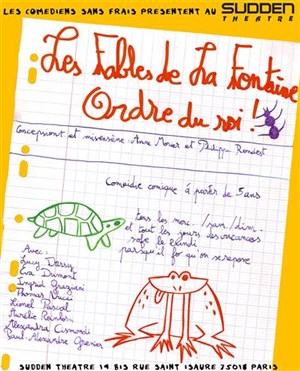 LES COMEDIENS SANS FRAIS PRESENTENT AU SUDDEN
THEATRE
Les Fables de La Fontaine
Ordre du roi !
Conception et mise scène: Anne Morier et Philippe Rondest
Comédie comique à partir de 5 ans
tous les merc. /sam./dim.
et tout les jours des vacances
sofe le lundi
parsqu'il fo qu'on se repose
Avec:
Lucy Dessy
Eva Dumont
Ingrid Graziani
Thomas Ricci
Lionel Pascal
Aurélie
Alexandra Cismondi
Paul-Alexandre
SUDDEN THEATRE 14 BIS RUE SAINT ISAURE 75018 PARIS